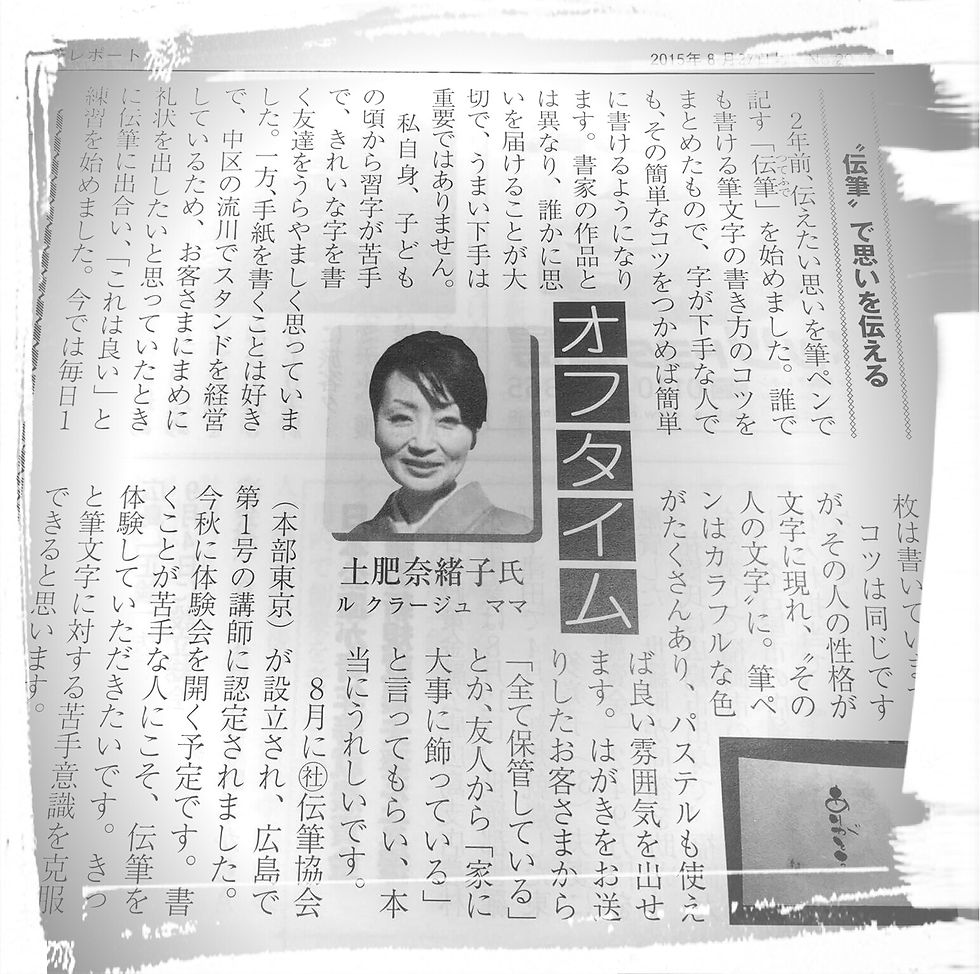 レポート
2015年8月27日
〝伝筆〟で思いを伝える
2年前、伝えたい思いを筆ペンで
記す「伝筆」を始めました。誰で
つてふで
も書ける筆文字の書き方のコツを
まとめたもので、字が下手な人で
も、その簡単なコツをつかめば簡単
に書けるようになり
ます。書家の作品と
は異なり、誰かに思
いを届けることが大
切で、うまい下手は
重要ではありません。
私自身、子ども
の頃から習字が苦手
で、きれいな字を書
く友達をうらやましく思っていま
した。一方、手紙を書くことは好き
で、中区の流川でスタンドを経営
しているため、お客さまにまめに
礼状を出したいと思っていたとき
に伝筆に出合い、「これは良い」と
練習を始めました。今では毎日1
オフタイム
土肥奈緒子氏
ル クラージュ ママ
枚は書いています
コツは同じです
が、その人の性格が
文字に現れ、〝その
人の文字〟に。筆ペ
ンはカラフルな色
がたくさんあり、パステルも使え
ば良い雰囲気を出せ
ます。はがきをお送
りしたお客さまから
「全て保管している」
とか、友人から「家に
大事に飾っている」
と言ってもらい、本
当にうれしいです。
8月に㈳伝筆協会
（本部東京）が設立され、広島で
第1号の講師に認定されました。
今秋に体験会を開く予定です。書
くことが苦手な人にこそ、伝筆を
体験していただきたいです。きっ
と筆文字に対する苦手意識を克服
できると思います。
ありがとう